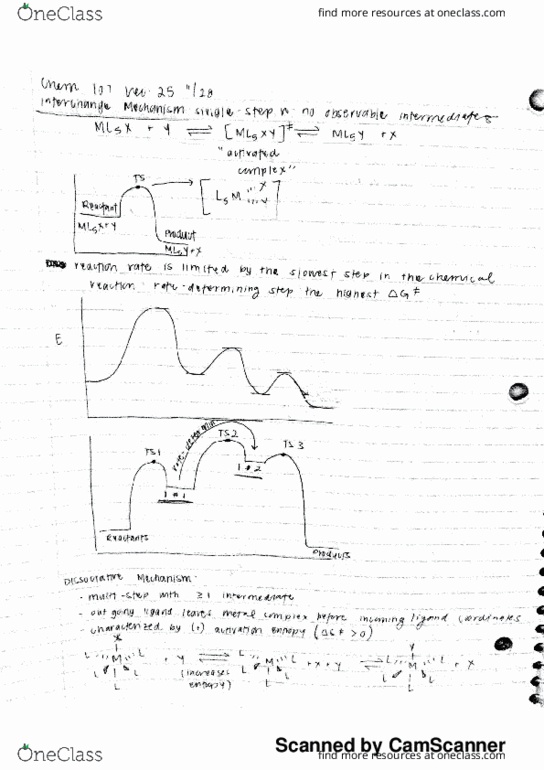 OneClass
find more resources at oneclass.com
Chem 107 Lec 25 11/28
Interchange Mechanism single-step no observable intermediates
ML5X + Y ⇌ [ML5XY]‡ ⇌ ML5Y + X
"activated
complex"
TS
[L5M X Y]
Reactant
ML5X+Y
Product
ML5Y+X
reaction rate is limited by the slowest step in the chemical
reaction rate-determining step the highest ΔG‡
E
rate-determin
TS1
TS2
TS3
I#1
I#2
Reactants
Products
Dissociative Mechanism:
- multi-step with ≥1 intermediate
- outgoing ligand leaves metal complex before incoming ligand coordinates
- characterized by (+) activation entropy (ΔG‡ > 0)
X
L L M L L L + Y ⇌ L L M L L + X + Y ⇌ L L M L L L + X
Y
(increases
entropy)
Scanned by CamScanner
OneClass
find more resources at oneclass.com